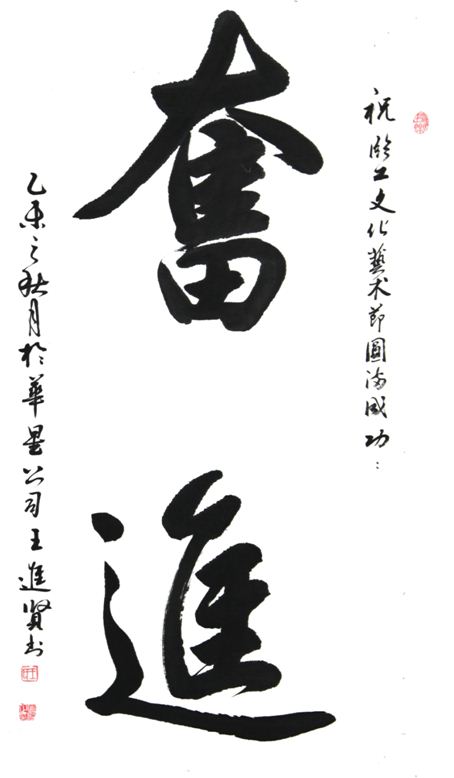 祝工文化藝术節圓滿成功：
奮進
乙未之秋月於華星公司王進賢书